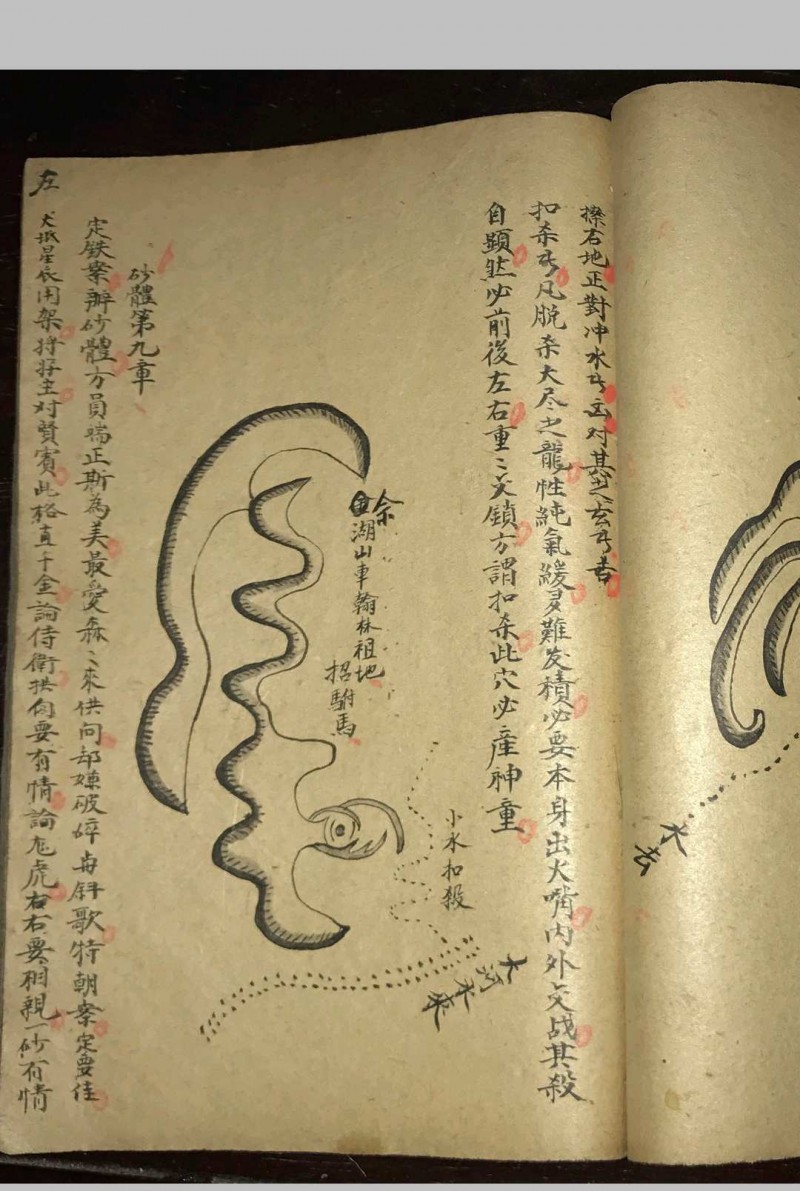 右地正對冲水
扣杀凡脱杀大尽之龍性純氣緩多難发積必要本身出火嘴内外交战其殺
自顕然必前後左右重〻交鎖方謂扣杀此穴必産神童
余
湖山車翰林祖地
招駙馬
小水扣殺
大河水來
砂體第九章
定鉄案辦砂體方員端正斯為美最愛森〻來供向却嫌破碎与斜歌特朝案定要佳
星辰開架将好主对賢賓此格直千金論侍衛拱向要有情論龙虎右右要相親一砂有情
左
水去